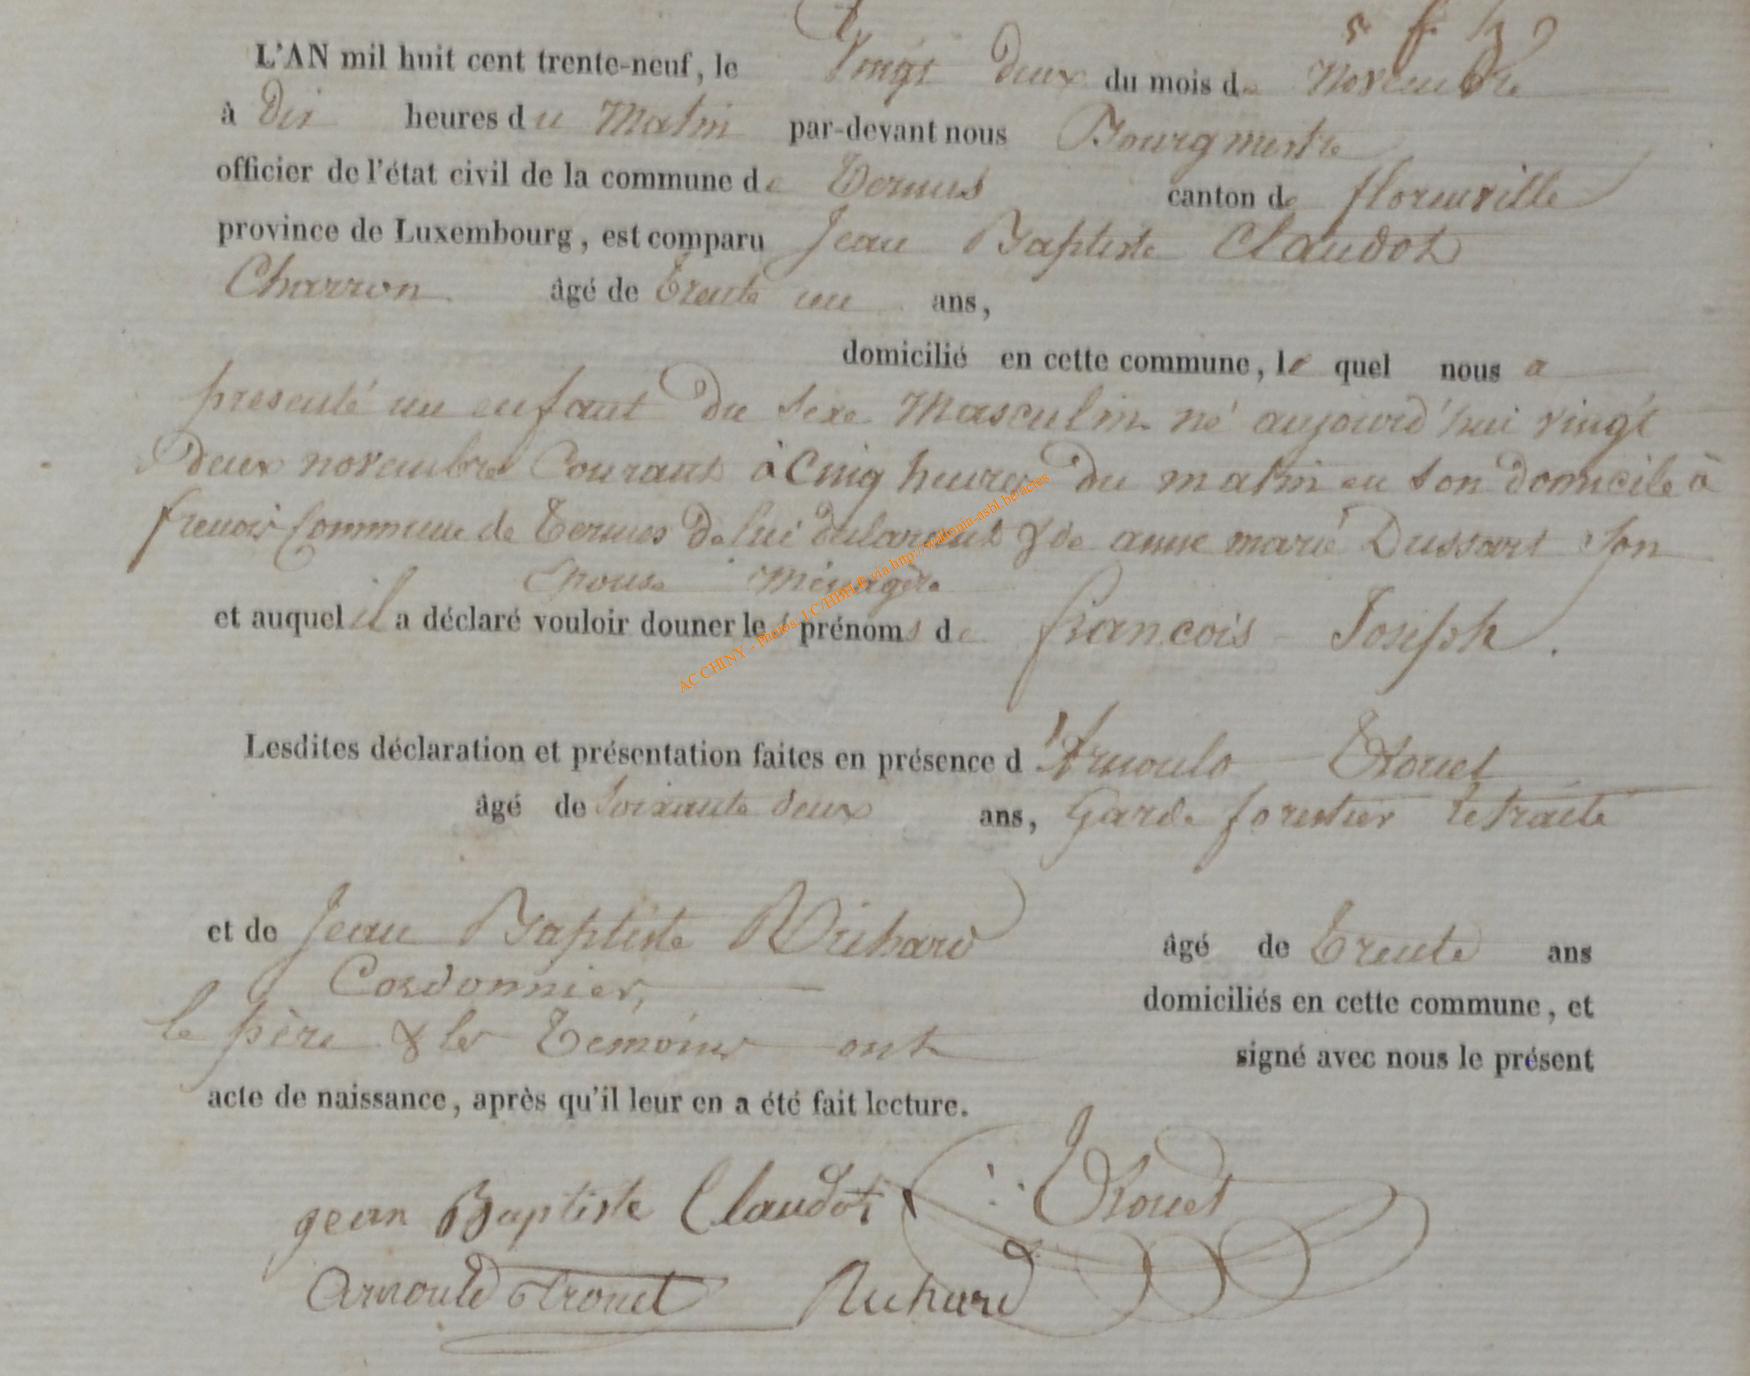 L'AN mil huit cent trente-neuf, le Vingt deux du mois de Novembre
à Dix heures du Matin par-devant nous Bourgmestre
officier de l'état civil de la commune de Termes canton de florenville
province de Luxembourg, est comparu Jean Baptiste Claudot
Charron âgé de Trente un ans,
domicilié en cette commune, le quel nous a
presenté un enfant du sexe Masculin né aujourd'hui vingt
deux novembre Courant à Cinq heures du matin en son domicile à
frenois Commune de Termes de lui déclarant & de anne marie Dussart son
Epouse Ménagère
et auquel il a déclaré vouloir donner les prénoms de francois Joseph.
AC CHINY - photos LC/HBH © via http://wallonia-asbl.be/actes
Lesdites déclaration et présentation faites en présence d'Arnould Trouet
âgé de soixante deux ans, Garde forestier retraité
et de Jean Baptiste Richard âgé de Trente ans
Cordonnier, domiciliés en cette commune, et
le père & les Témoins ont signé avec nous le présent
acte de naissance, après qu'il leur en a été fait lecture.
gean Baptiste Claudot Trouet
Arnould Trouet Richard